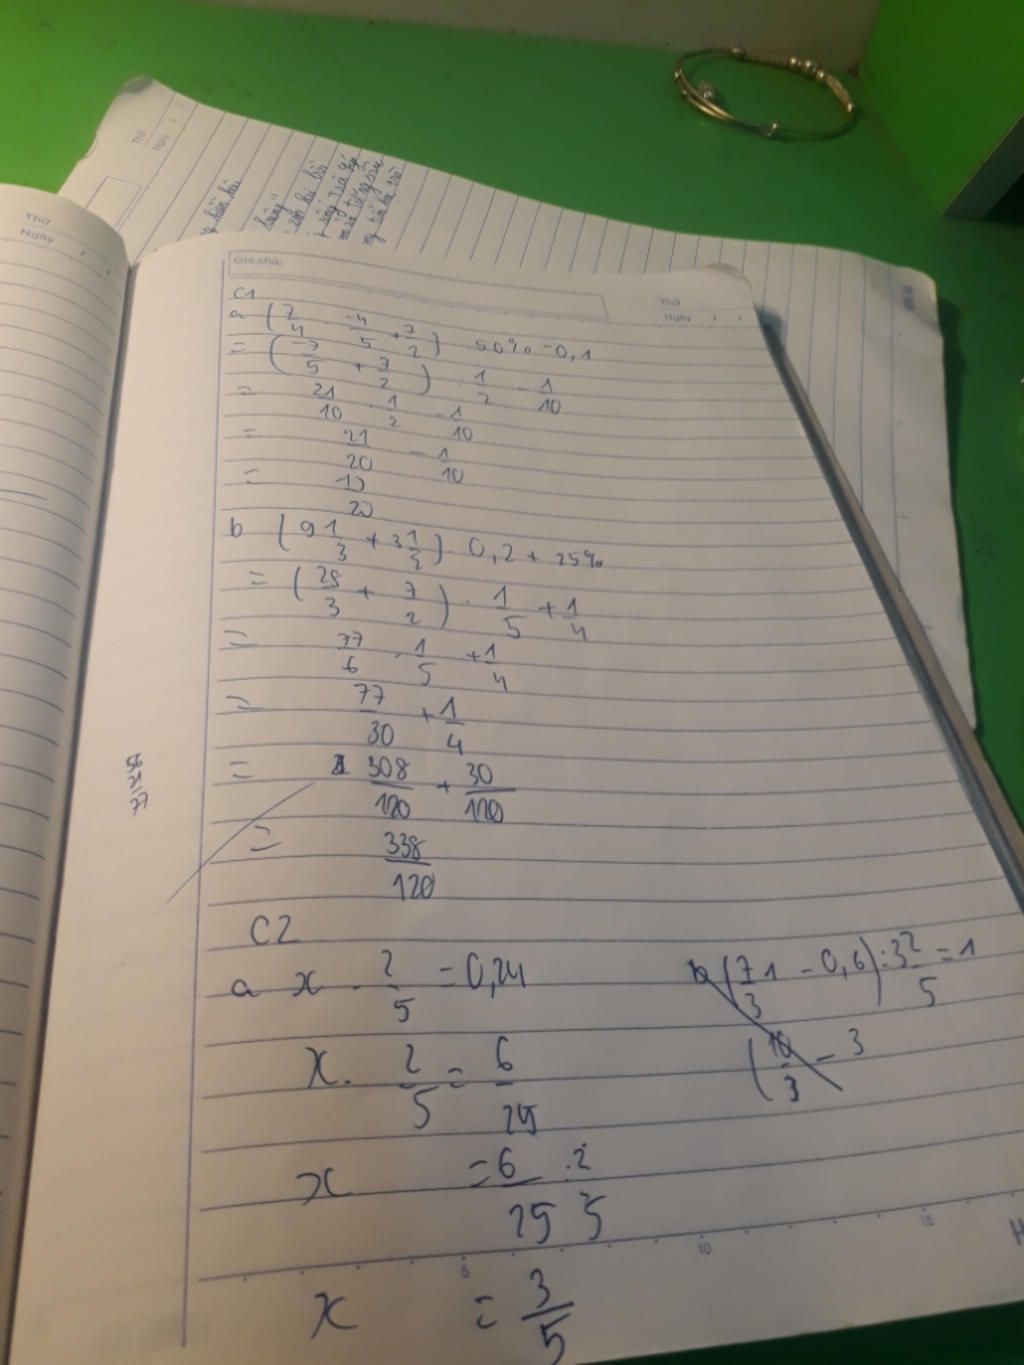 Thứ
Ngày
Thứ
Ngày
Ghi chú:
Thứ
Ngày
C1
a (7/4 . -4/5 + 7/2) . 50% - 0,1
= (-7/5 + 7/2) . 1/2 - 1/10
= 21/10 . 1/2 - 1/10
= 21/20 - 1/10
= 19/20
b (9 1/3 + 3 1/2) . 0,2 + 25%
= (28/3 + 7/2) . 1/5 + 1/4
= 77/6 . 1/5 + 1/4
= 77/30 + 1/4
= 308/120 + 30/120
= 338/120
C2
a x . 2/5 = 0,24
x . 2/5 = 6/25
x = 6/25 : 2/5
x = 3/5
b (7 1/3 - 0,6) : 3 2/5 = 1
5 10 15
H